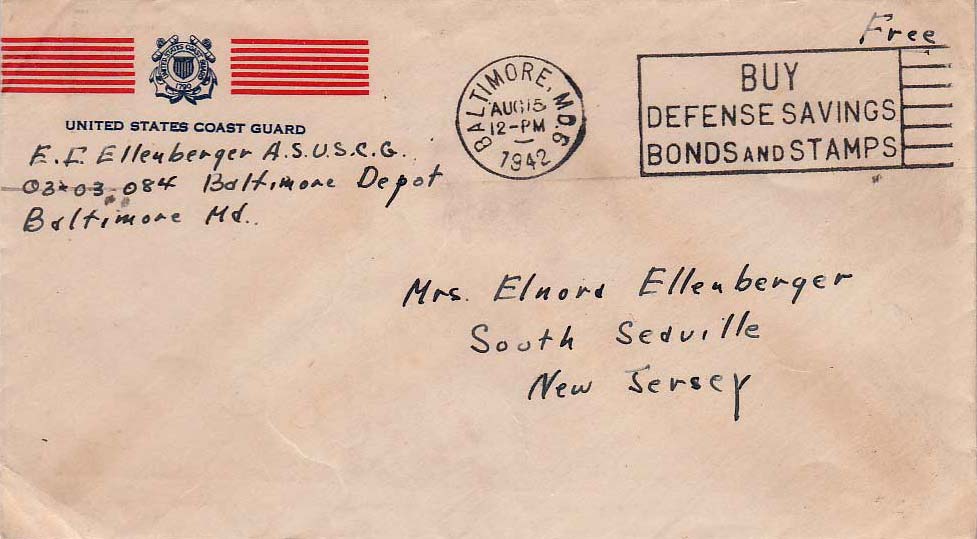 Free
UNITED STATES COAST GUARD
1790
UNITED STATES COAST GUARD
E. E. Ellenberger A.S.U.S.C.G.
03*03 084 Baltimore Depot
Baltimore Md.
BALTIMORE, MD. 6
AUG 15
12-PM
1942
BUY
DEFENSE SAVINGS
BONDS AND STAMPS
Mrs. Elnora Ellenberger
South Seaville
New Jersey